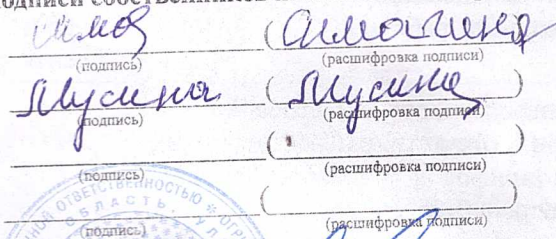 подписи собственников
(Симагина)
(подпись) (расшифровка подписи)
Мусина (Мусина)
(подпись) (расшифровка подписи)
( )
(подпись) (расшифровка подписи)
( )
(подпись) (расшифровка подписи)
ОТВЕТСТВЕННОСТЬЮ * ОГРН
ОБЛАСТЬ, УЛ